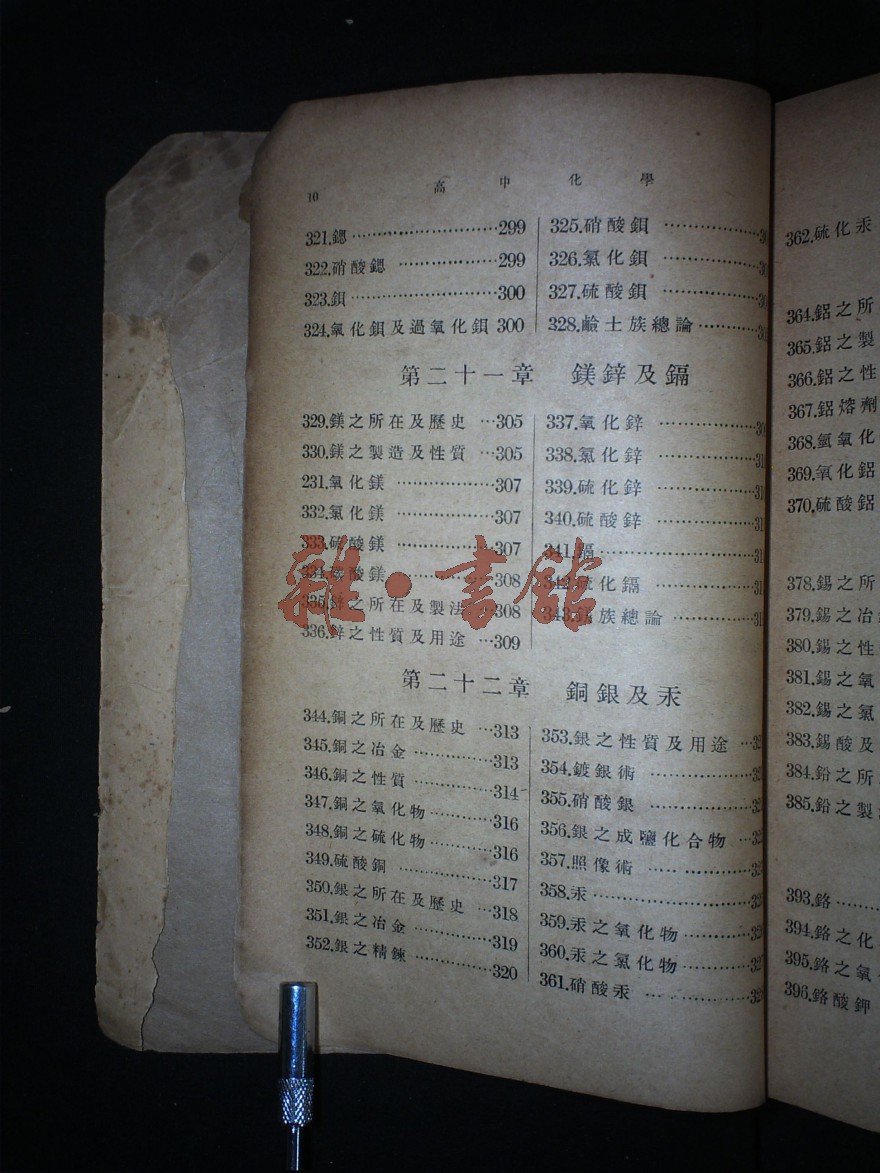 10 高中化學
321.鍶 299
322.硝酸鍶 299
323.鋇 300
324.氧化鋇及過氧化鋇 300
325.硝酸鋇
326.氯化鋇
327.硫酸鋇
328.鹼土族總論
第二十一章 鎂鋅及鎘
329.鎂之所在及歷史 305
330.鎂之製造及性質 305
231.氧化鎂 307
332.氯化鎂 307
333.硫酸鎂 307
334.碳酸鎂 308
335.鋅之所在及製法 308
336.鋅之性質及用途 309
337.氧化鋅
338.氯化鋅
339.硫化鋅
340.硫酸鋅
341.鎘
342.硫化鎘
343.鎂族總論
第二十二章 銅銀及汞
344.銅之所在及歷史 313
345.銅之冶金 313
346.銅之性質 314
347.銅之氧化物 316
348.銅之硫化物 316
349.硫酸銅 317
350.銀之所在及歷史 318
351.銀之冶金 319
352.銀之精鍊 320
353.銀之性質及用途
354.鍍銀術
355.硝酸銀
356.銀之成鹽化合物
357.照像術
358.汞
359.汞之氧化物
360.汞之氯化物
361.硝酸汞
362.硫化汞
364.鋁之所
365.鋁之製
366.鋁之性
367.鋁熔劑
368.氫氧化
369.氧化鋁
370.硫酸鋁
378.錫之所
379.錫之冶
380.錫之性
381.錫之氧
382.錫之氯
383.錫酸及
384.鉛之所
385.鉛之製
393.鉻
394.鉻之化
395.鉻之氧
396.鉻酸鉀
雜·書館